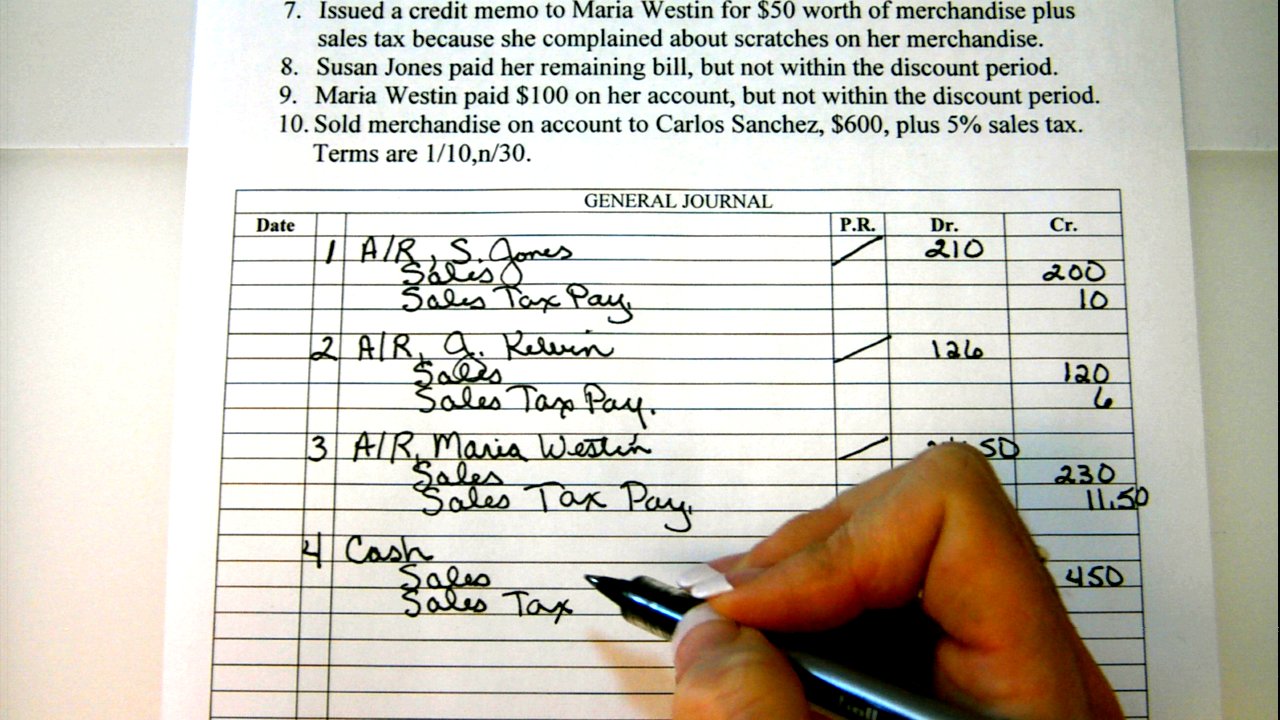 7. Issued a credit memo to Maria Westin for $50 worth of merchandise plus
sales tax because she complained about scratches on her merchandise.
8. Susan Jones paid her remaining bill, but not within the discount period.
9. Maria Westin paid $100 on her account, but not within the discount period.
10. Sold merchandise on account to Carlos Sanchez, $600, plus 5% sales tax.
Terms are 1/10,n/30.
GENERAL JOURNAL
Date P.R. Dr. Cr.
1 A/R, S. Jones 210
Sales 200
Sales Tax Pay. 10
2 A/R, J. Kelvin 126
Sales 120
Sales Tax Pay. 6
3 A/R, Maria Westin 50
Sales 230
Sales Tax Pay. 11.50
4 Cash
Sales 450
Sales Tax